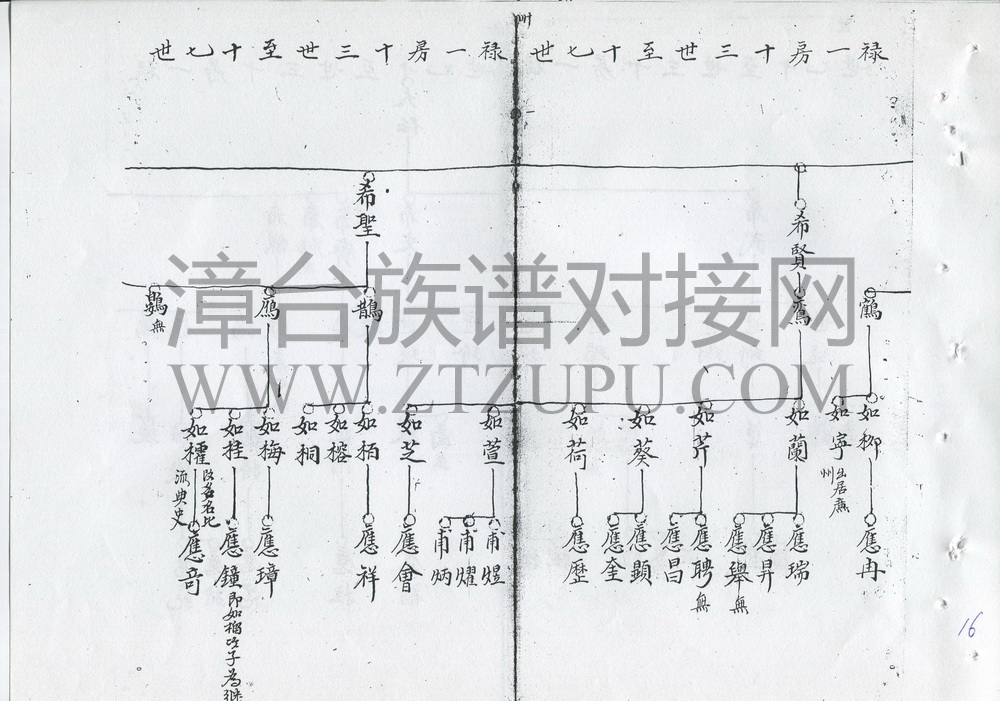 禄一房十三世至十七世
禄一房十三世至十七世
卅
希賢
希聖
鶴
鷹
鵲
鴈
鷃 無
如柳
如寧 出居廉州
如蘭
如芹
如葵
如荷
如萱
如芝
如栢
如榕
如桐
如梅
如桂
如櫂 改名名比 派典史
應冉
應瑞
應昇
應舉 無
應聘 無
應昌
應顕
應奎
應歷
甫煜
甫燿
甫炳
應會
應祥
應璋
應鐘 即如榴次子為継
應奇
漳台族谱对接网
WWW.ZTZUPU.COM
16